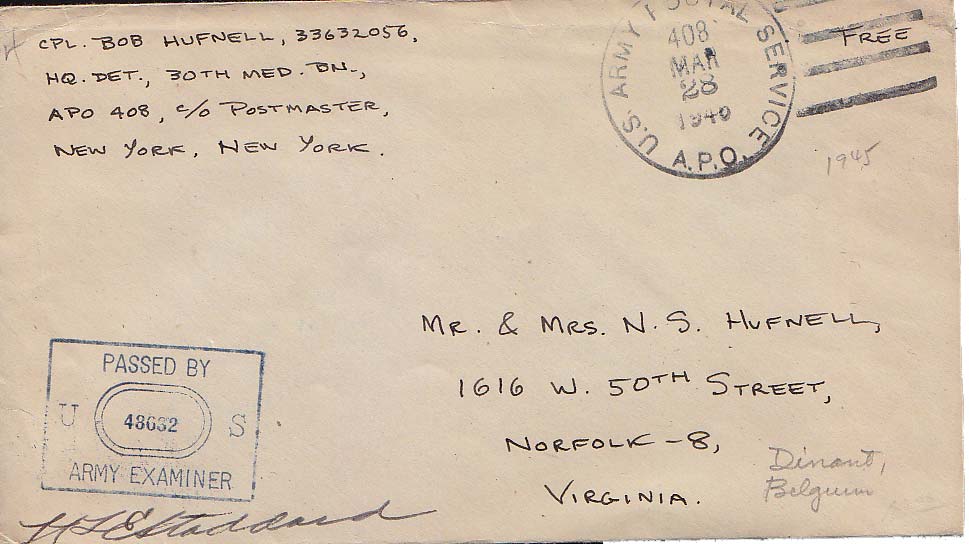 CPL. BOB HUFNELL, 33632056,
HQ. DET., 30TH MED. BN.,
APO 408, c/o POSTMASTER,
NEW YORK, NEW YORK.
U.S. ARMY POSTAL SERVICE
408
MAR
28
A.P.O.
FREE
1945
MR. & MRS. N. S. HUFNELL,
1616 W. 50TH STREET,
NORFOLK-8,
VIRGINIA.
Dinant,
Belgium
PASSED BY
U S
ARMY EXAMINER
Stoddard